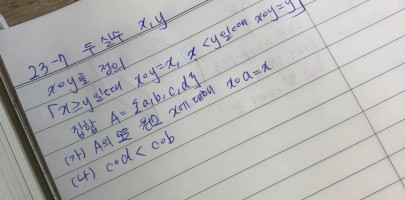 23-7 두 실수 x,y
x∘y를 정의
「x≥y일 때 x∘y=x, x<y일 때 x∘y=y」
집합 A= {a,b,c,d}
(가) A의 모든 원소 x에 대해 x∘a=x
(나) c∘d < c∘b